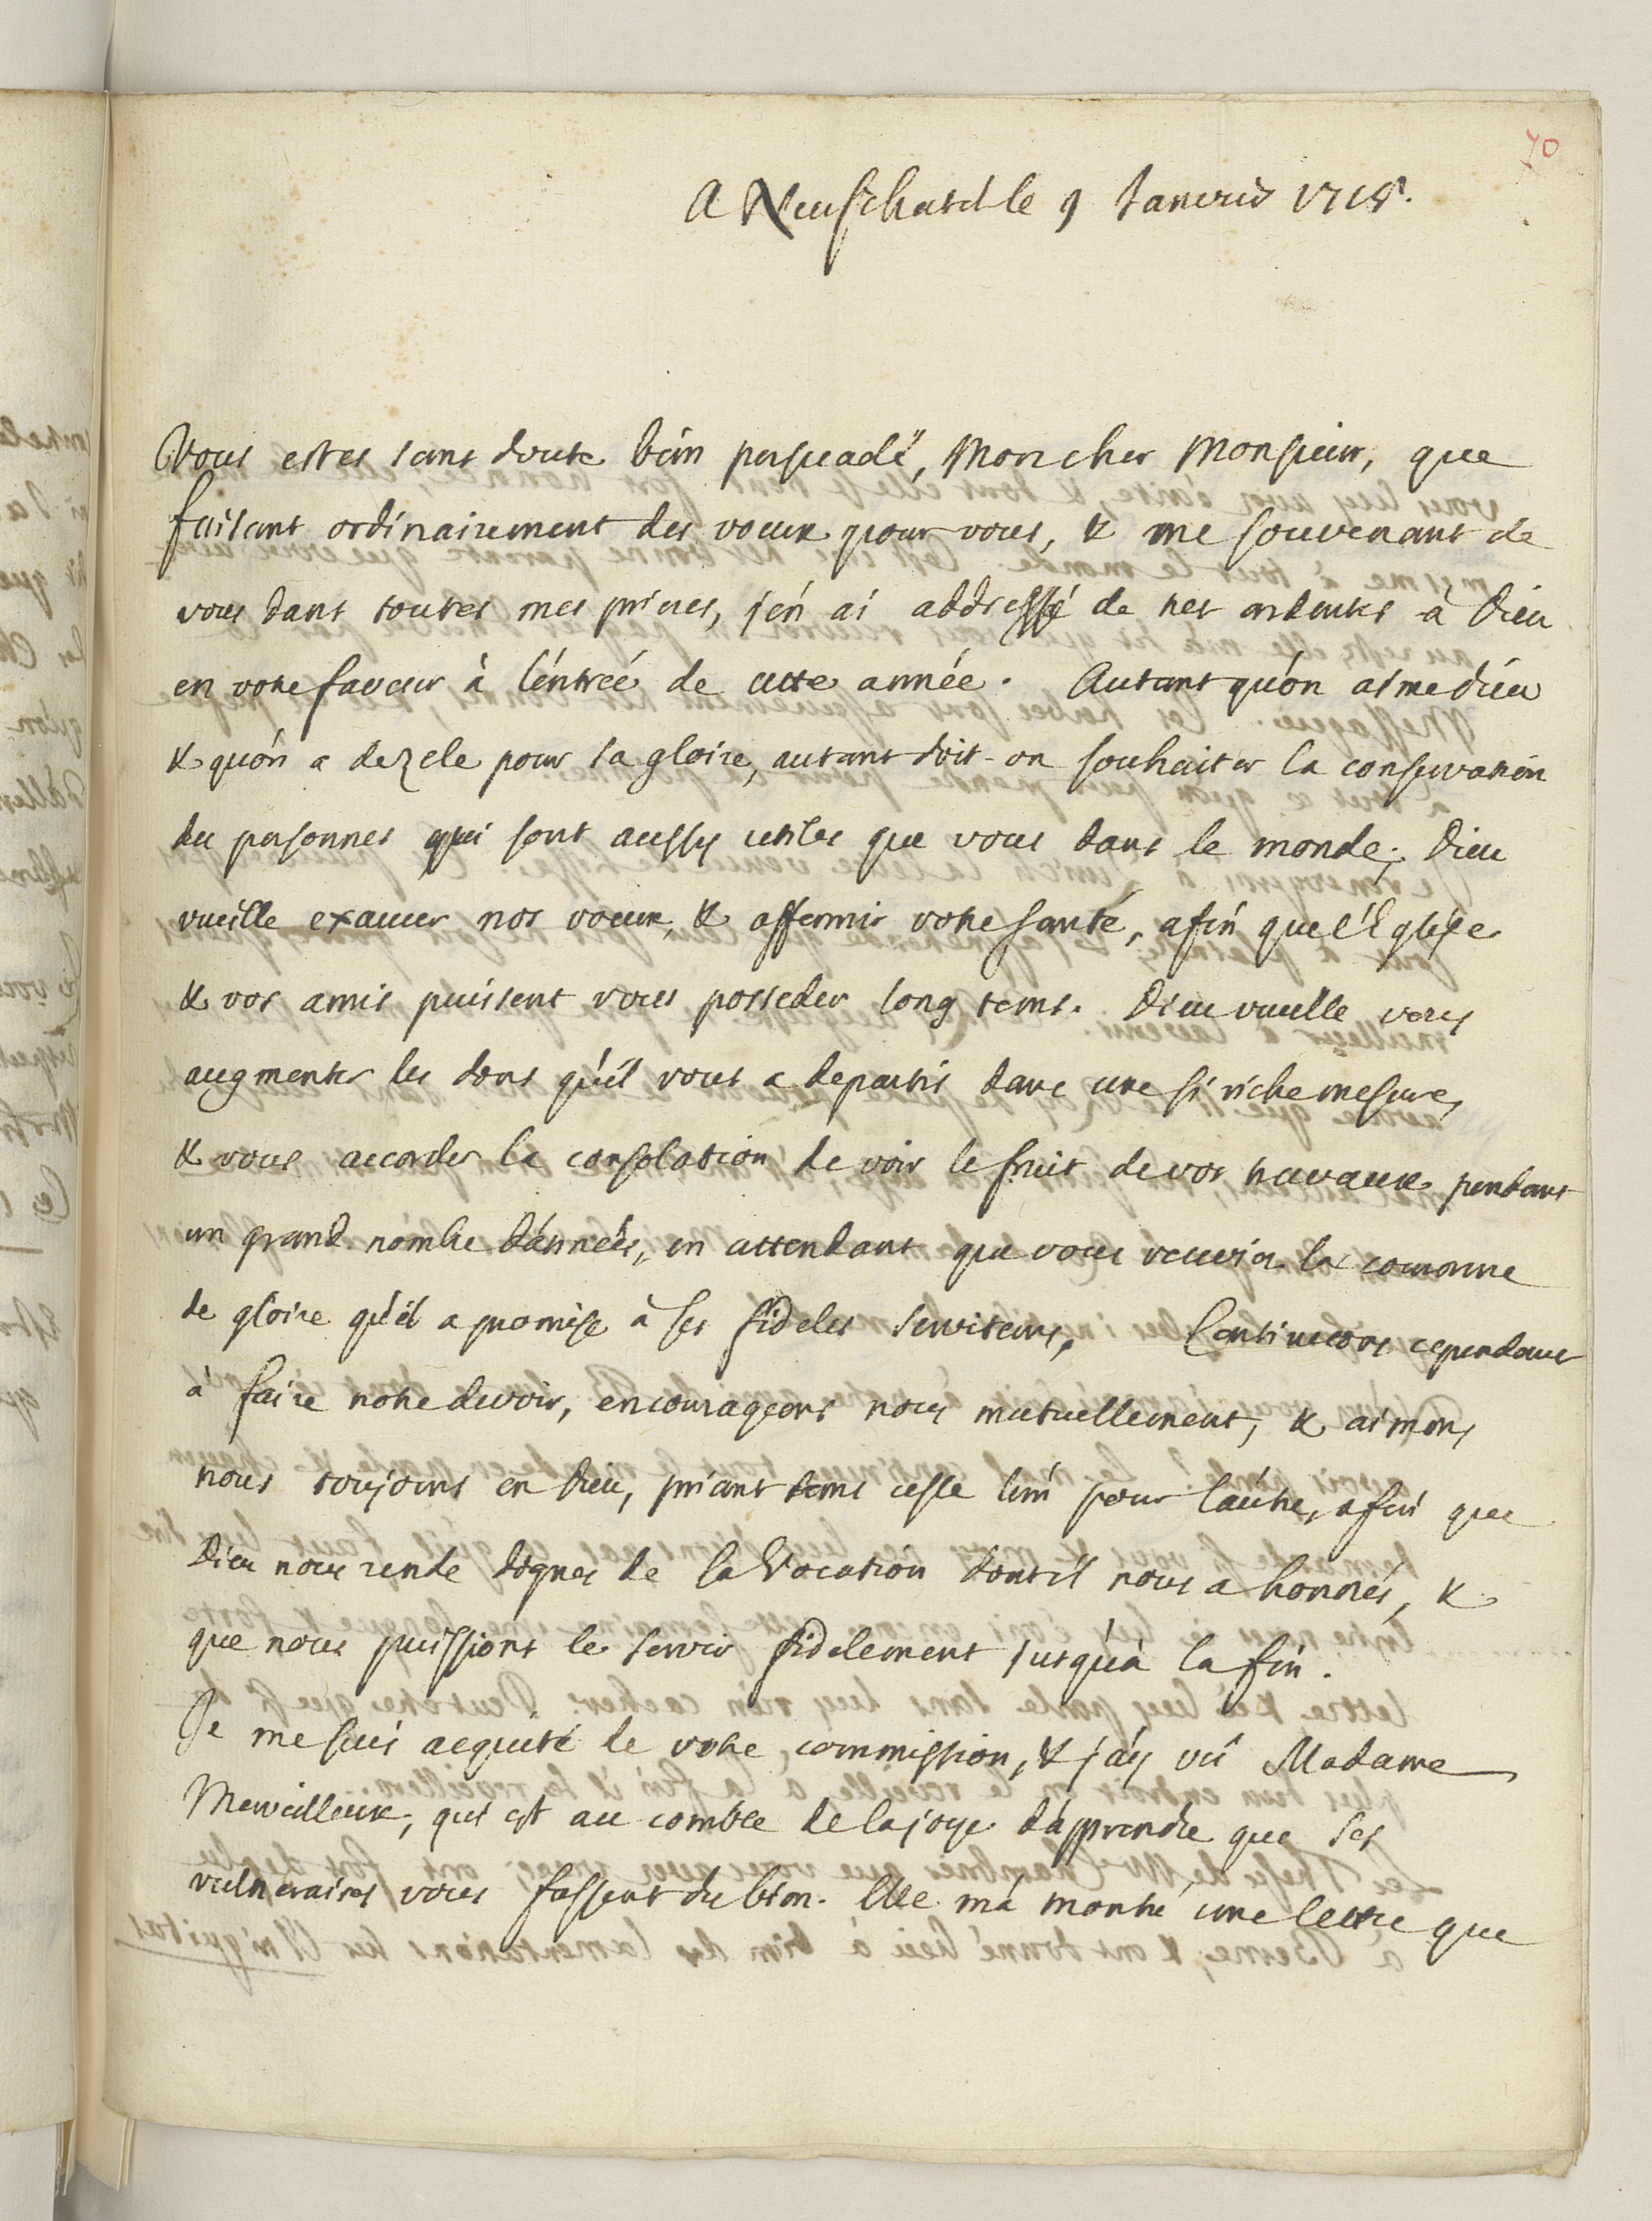 70
A Neufchatel le 9 Janvier 1718.
Vous estes sans doute bien persuadé, Mon cher Monsieur, que
faisant ordinairement des voeux pour vous, & me souvenant de
vous dans toutes mes prieres, j'en ai addressé de tres ardentes à Dieu
en votre faveur à l'entrée de cette année. Autant qu'on aime Dieu
& qu'on a de zele pour sa gloire, autant doit-on souhaiter la conservation
des personnes qui sont aussy utiles que vous dans le monde; Dieu
vueille exaucer nos voeux, & affermir votre santé, afin que l'Eglise
& vos amis puissent vous posseder long tems. Dieu vueille vous
augmenter les dons qu'il vous a departis dans une si riche mesure,
& vous accorder la consolation de voir le fruit de vos travaux pendant
un grand nombre d'années, en attendant que vous receviez la couronne
de gloire qu'il a promise à ses fideles serviteurs. Continuons cependant
à faire notre devoir, encourageons nous mutuellement, & aimons
nous toujours en Dieu, priant sans cesse l'un pour l'autre, afin que
Dieu nous rende dignes de la Vocation dont il nous a honnorés, &
que nous puissions le servir fidelement jusqu'à la fin.
Je me suis acquité de votre commission, & j'ay vû Madame
Merveilleux, qui est au comble de la joye d'apprendre que ses
vulneraires vous fassent du bien. Elle m'a montré une lettre que